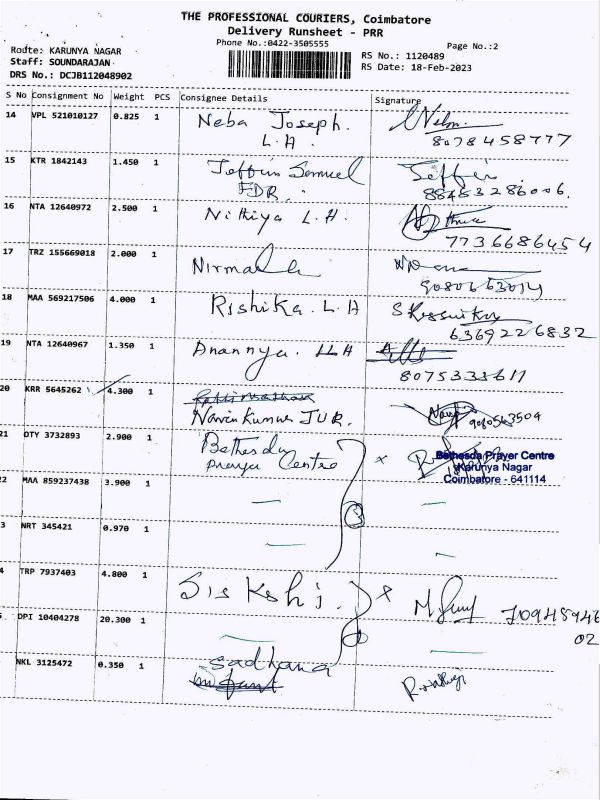 THE PROFESSIONAL COURIERS, Coimbatore
Delivery Runsheet - PRR
Phone No.:0422-3505555
Page No.:2
Route: KARUNYA NAGAR
Staff: SOUNDARAJAN
DRS No.: DCJB112048902
RS No.: 1120489
RS Date: 18-Feb-2023
S No Consignment No Weight PCS Consignee Details Signature
14 VPL 521010127 0.825 1 Neba Joseph.
L.H.
8078458777
15 KTR 1842143 1.450 1 Jeffin Samuel Jeffin
FDR.
16 NTA 12640972 2.500 1 Nithiya L.H.
7736686454
17 TRZ 155669018 2.000 1
9080663014
18 MAA 569217506 4.000 1 Rishika. L.H
6369226832
19 NTA 12640967 1.350 1 Anannya. LLH
8075333611
20 KRR 5645262 4.300 1
Navin Kumar JUR.
9080563509
21 OTY 3732893 2.900 1 Bethesda x
Prayer Centre
Bethesda Prayer Centre
Karunya Nagar
Coimbatore - 641114
2 MAA 859237438 3.900 1
3
3 NRT 345421 0.970 1
4 TRP 7937403 4.800 1 x
DPI 10404278 20.300 1
02
NKL 3125472 0.350 1 Sadhana